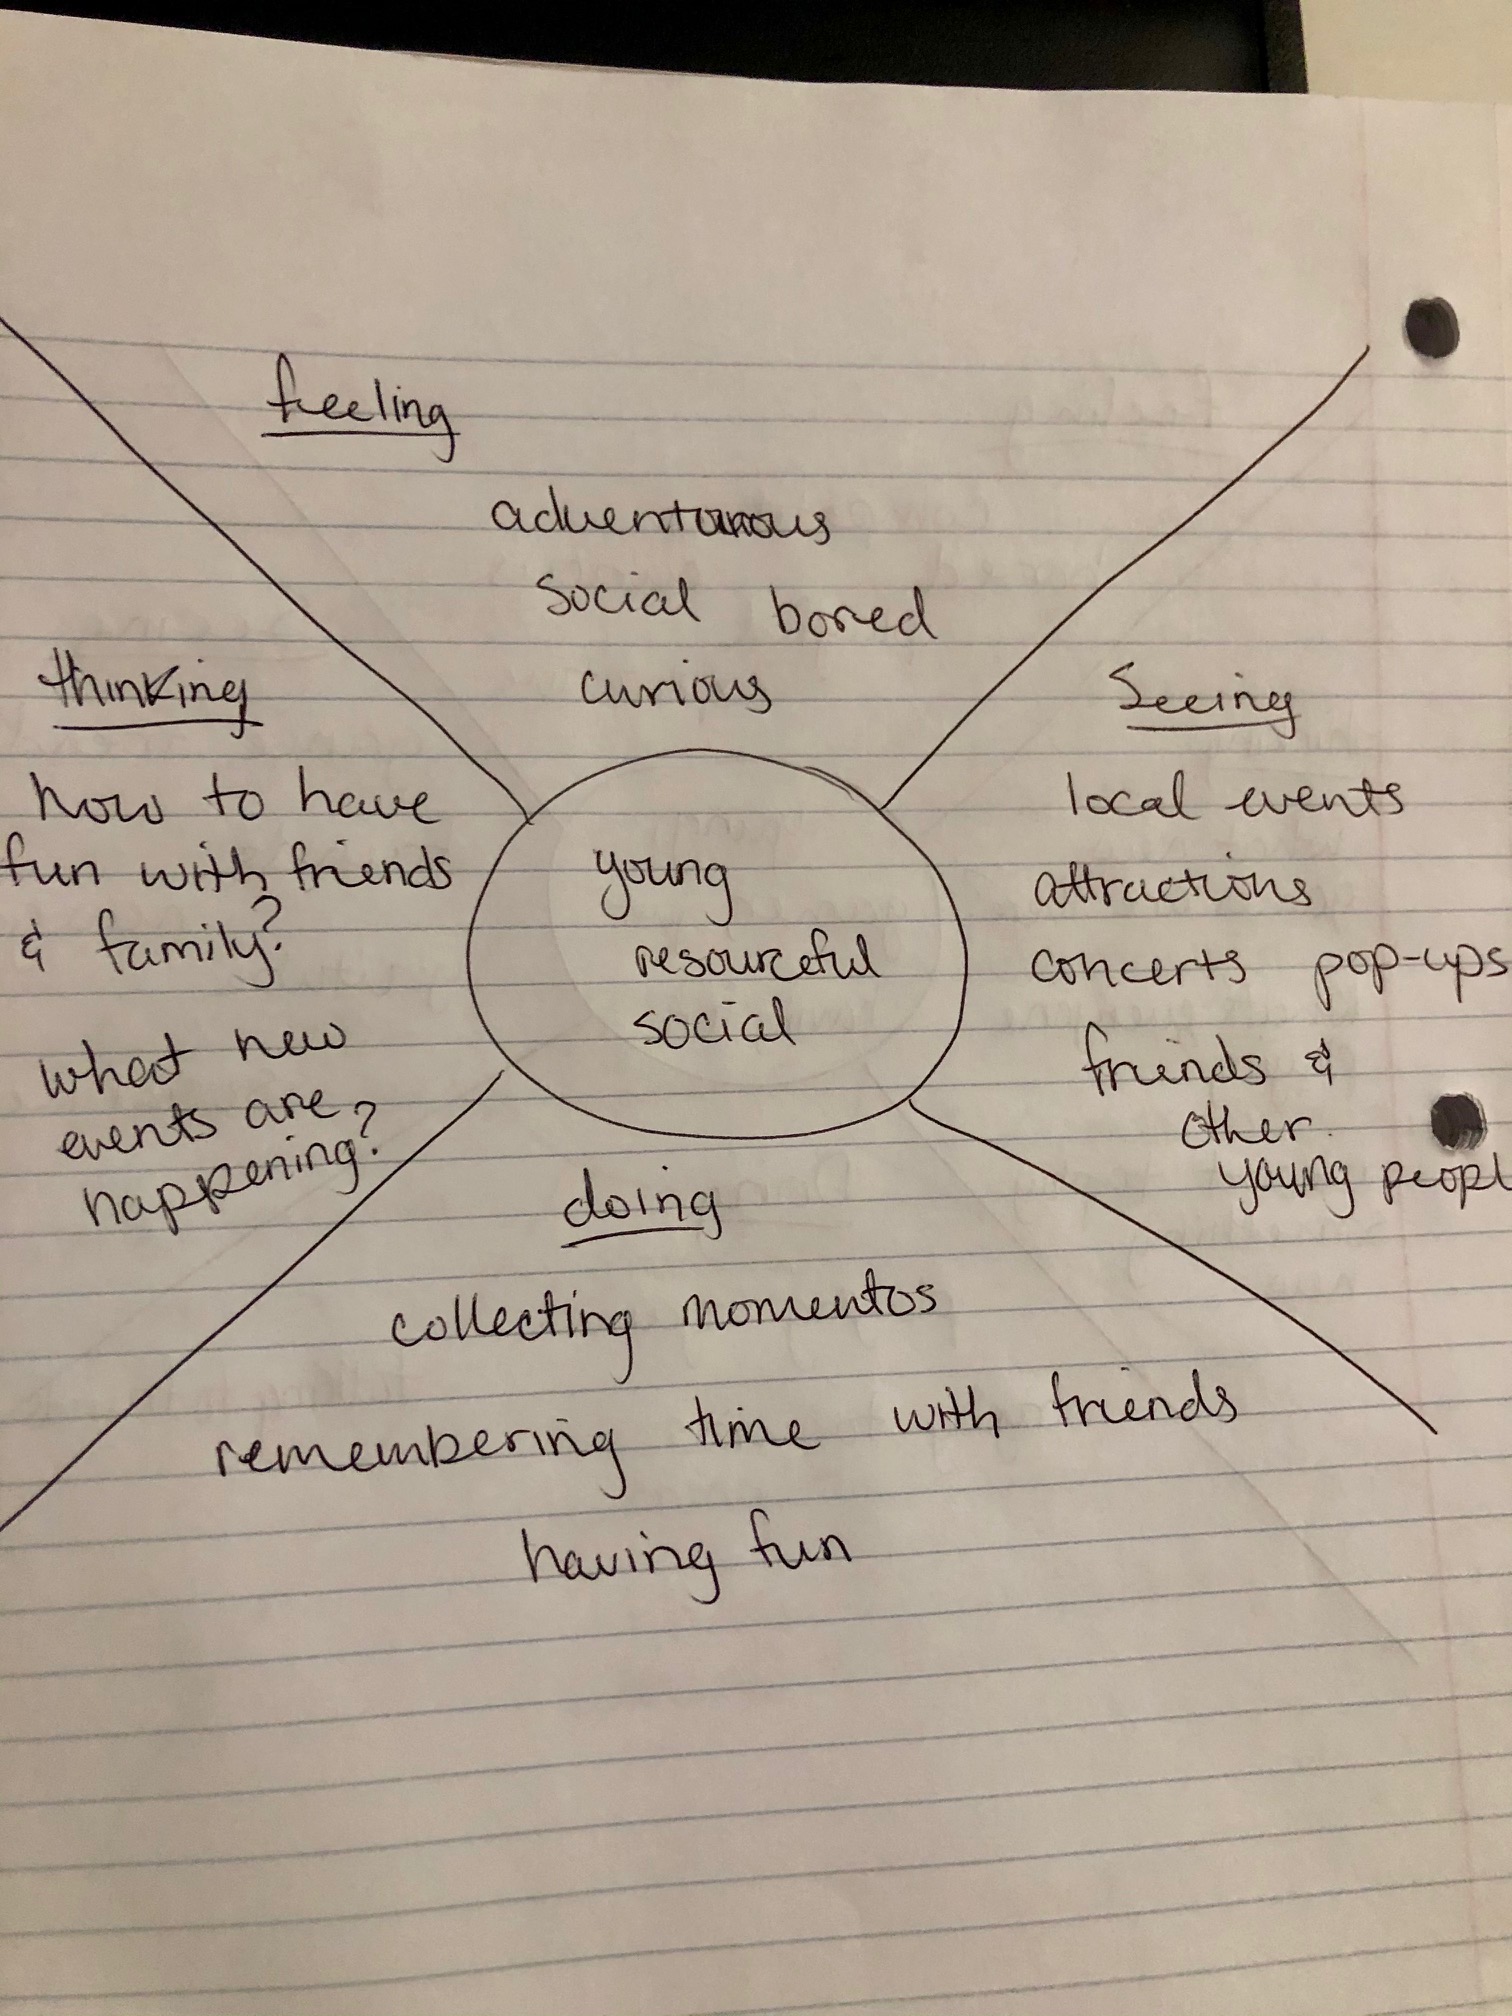 feeling
adventurous
social bored
curious
thinking
how to have
fun with friends
& family?
what new
events are
happening?
young
resourceful
social
Seeing
local events
attractions
concerts pop-ups
friends &
other
young peopl
doing
collecting momentos
remembering time with friends
having fun